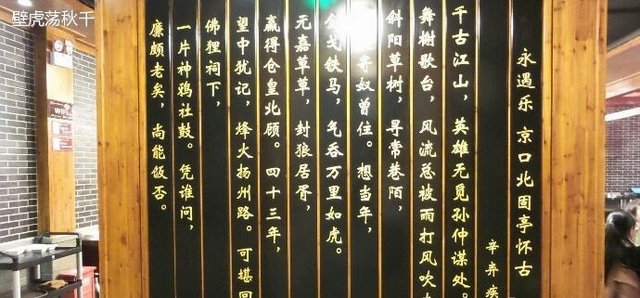 壁虎荡秋千
永遇乐 京口北固亭怀古
辛弃疾
千古江山，英雄无觅孙仲谋处。
舞榭歌台，风流总被雨打风吹
斜阳草树，寻常巷陌，
奴曾住。想当年，
金戈铁马，气吞万里如虎。
元嘉草草，封狼居胥，
赢得仓皇北顾。四十三年，
望中犹记，烽火扬州路。可堪回
佛狸祠下，
一片神鸦社鼓。凭谁问，
廉颇老矣，尚能饭否。